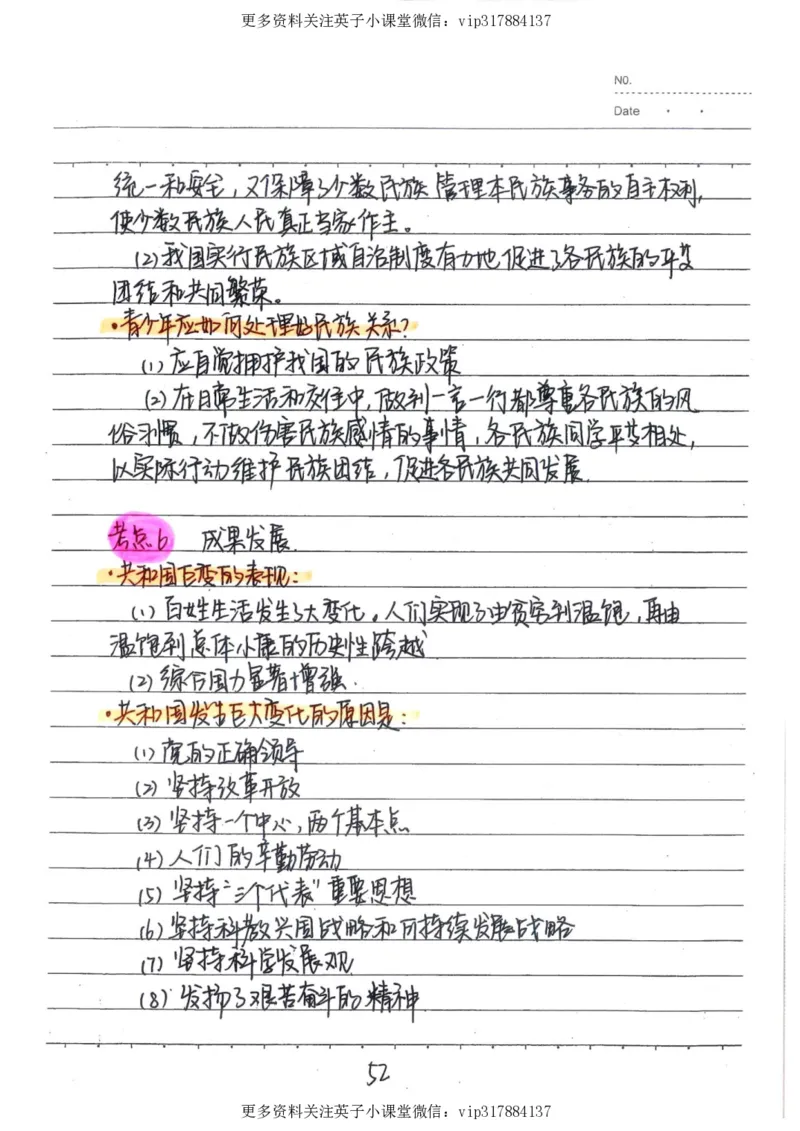 更多资料关注英子小课堂微信：vip317884137
NO.
Date
统一和安全，又保障了少数民族管理本民族事务的自主权利，
使少数民族人民真正当家作主。
(2)我国实行民族区域自治制度有力地促进了各民族的平等
团结和共同繁荣。
·青少年应如何处理好民族关系？
(1)应自觉拥护我国的民族政策
(2)在日常生活和交往中，做到一言一行都尊重各民族的风
俗习惯，不做伤害民族感情的事情，各民族同学平等相处，
以实际行动维护民族团结，促进各民族共同发展.
考点6 成果发展.
·共和国巨变的表现：
(1)百姓生活发生了大变化。人们实现了由贫穷到温饱，再由
温饱到总体小康的历史性跨越
(2)综合国力显著增强.
·共和国发生巨大变化的原因是：
(1)党的正确领导
(2)坚持改革开放
(3)坚持一个中心，两个基本点
(4)人们的辛勤劳动
(5)坚持“三个代表”重要思想
(6)坚持科教兴国战略和可持续发展战略
(7)坚持科学发展观
(8)发扬了艰苦奋斗的精神
52
更多资料关注英子小课堂微信：vip317884137